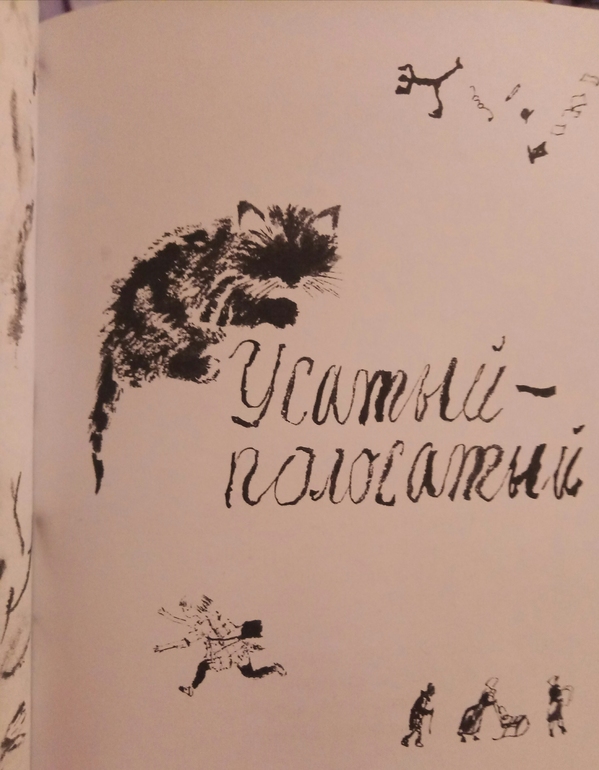 Усатый-
полосатый